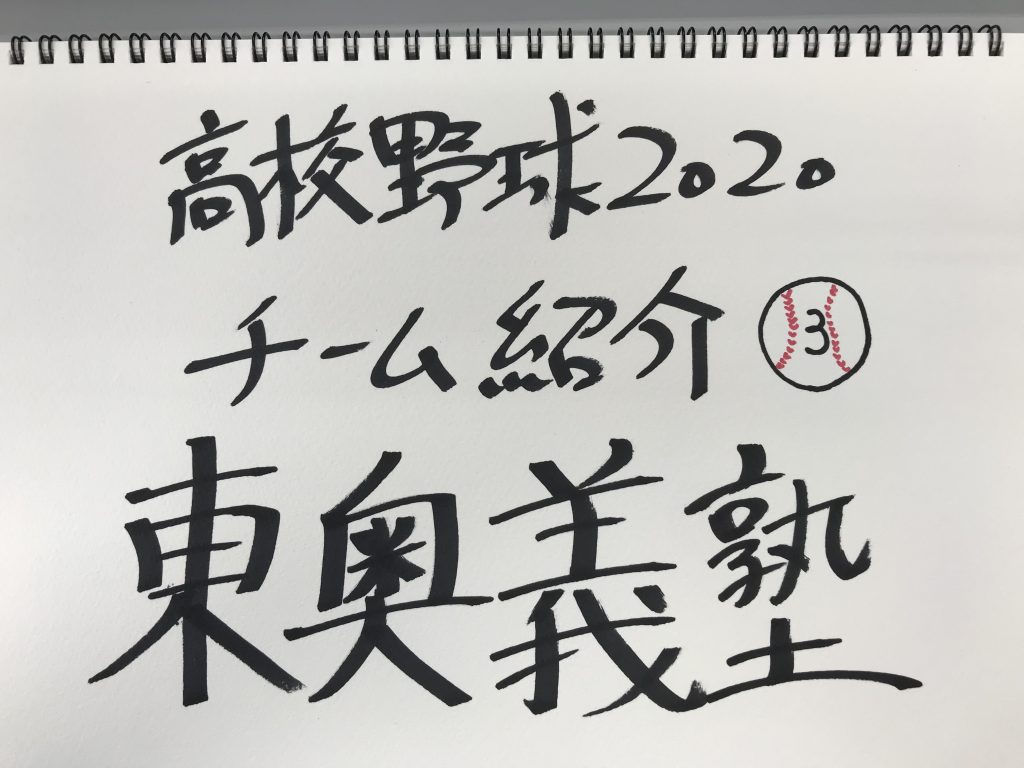 高校野球2020
チーム紹介 3
東奥義塾